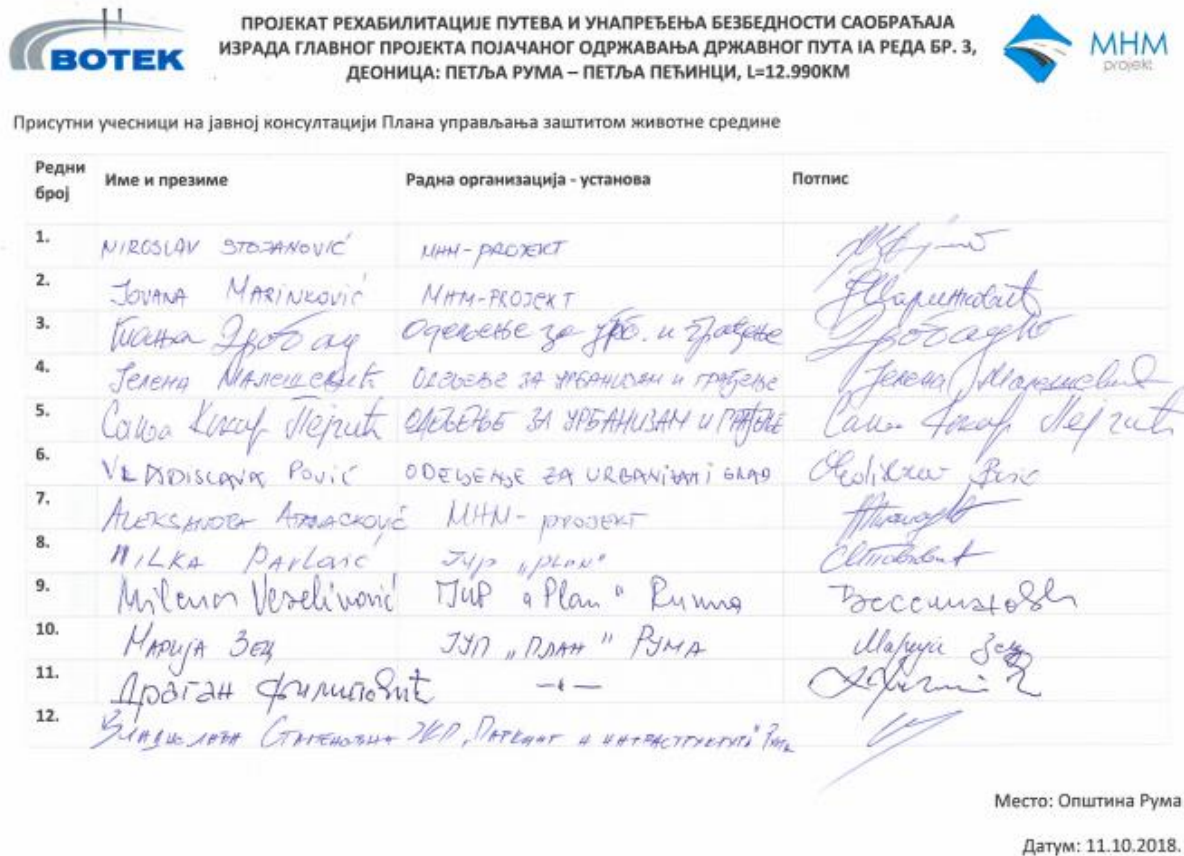 ВОТЕК
ПРОЈЕКАТ РЕХАБИЛИТАЦИЈЕ ПУТЕВА И УНАПРЕЂЕЊА БЕЗБЕДНОСТИ САОБРАЋАЈА
ИЗРАДА ГЛАВНОГ ПРОЈЕКТА ПОЈАЧАНОГ ОДРЖАВАЊА ДРЖАВНОГ ПУТА IА РЕДА БР. 3,
ДЕОНИЦА: ПЕТЉА РУМА – ПЕТЉА ПЕЋИНЦИ, L=12.990КМ
МНМ
projekt
Присутни учесници на јавној консултацији Плана управљања заштитом животне средине
Редни број Име и презиме Радна организација - установа Потпис
1. MIROSLAV STOJANOVIĆ MHM-PROJEKT
2. JOVANA MARINKOVIĆ MHM-PROJEKT Маринковић
3. Одељење за урб. и грађење
4. Јелена Малешевић ОДЕЉЕЊЕ ЗА УРБАНИЗАМ И ГРАЂЕЊЕ Јелена Малешевић
5. Сања ОДЕЉЕЊЕ ЗА УРБАНИЗАМ И ГРАЂЕЊЕ Сања
6. VLADISLAVA ODELJENJE ZA URBANIZAM I GRAD
7. ALEKSANDRA ATANACKOVIĆ MHM-PROJEKT
8. MILKA PAVLOVIĆ JUP "PLAN"
9. Milena Veselinović JUP "Plan" Ruma Веселиновић
10. МАРИЈА ЗЕЦ ЈУП „ПЛАН" РУМА Марија Зец
11. Драган Филиповић -ıı-
12. ЈКП
Место: Општина Рума
Датум: 11.10.2018.